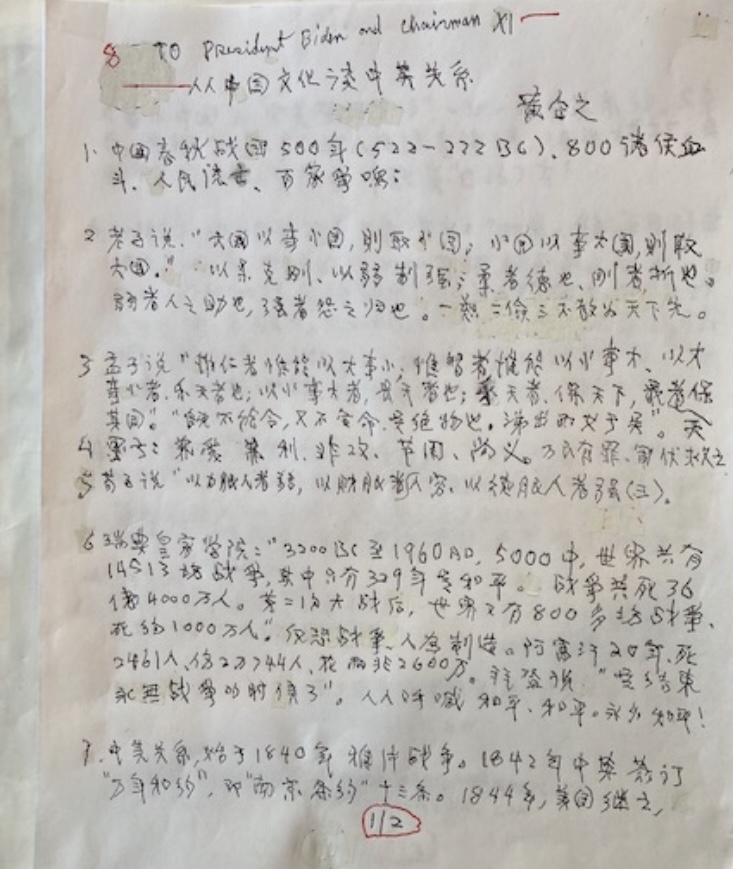 8 — TO President Biden and chairman XI —
—— 从中国文化谈中美关系
黄企之
1. 中国春秋战国500年(522-222BC)、800诸侯血
斗、人民流亡、百家争鸣:
2 老子说“大国以事小国,则取小国;小国以事大国,则取
大国。”以柔克刚、以弱制强;柔者德也、刚者折也。
弱者人之助也,强者怨之归也。一慈二俭三不敢为天下先。
3 孟子说“惟仁者惟能以大事小,惟智者惟能以小事大、以大
事小者、乐天者也;以小事大者,畏天者也;乐天者、保天下,畏者保
其国”。“既不能令,又不受命、是绝物也。涕出而女于吴”。天
4 墨子:兼爱 兼利、非攻、节用、尚义。万民有罪、
5 荀子说“以力服人者弱,以财服者穷、以德服人者强(三)。
6 瑞典皇家学院:“3200BC至1960AD,5000中,世界共有
14513场战争,其中只有329年是和平。战争共死36
亿4000万人。第二次大战后,世界又有800多场战争、
死约1000万人”。战争、人为制造。阿富汗20年、死
2461人、伤20744人、花 2600万。拜登说、“是结束
永无战争的时候了”。人人呼喊 和平、和平。永久和平!
7. 中美关系,始于1840年 鸦片战争。1842年中英签订
“万年和约”,即“南京条约”十三条。1844年,美国继之,
1/2